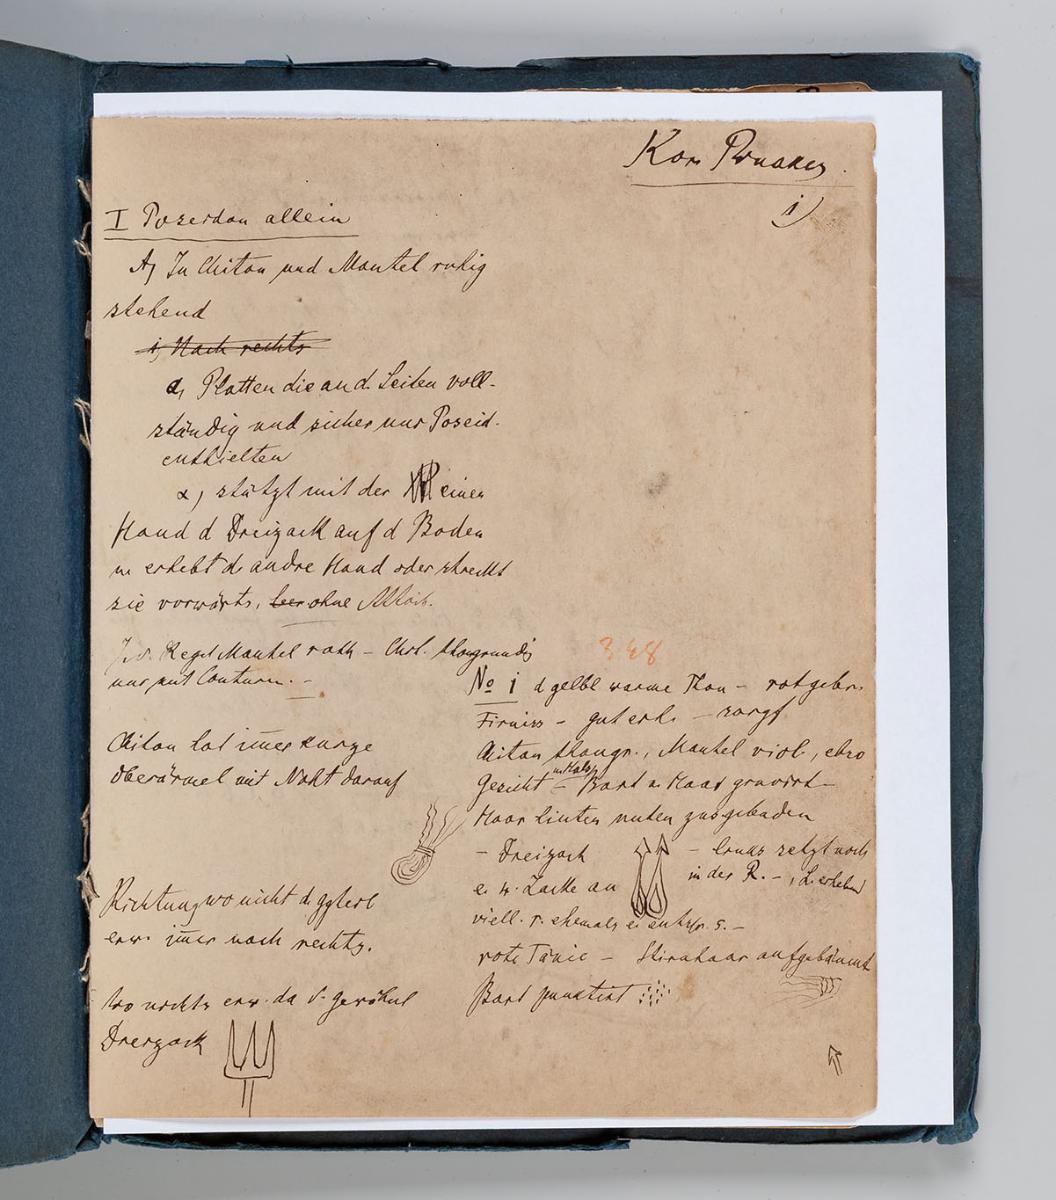 Kor. Pinakes.
1)
I Poseidon allein
A) In Chiton und Mantel ruhig
stehend
1) Nach rechts
a) Platten die an d. Seiten voll-
ständig und sicher nur Poseid.
enthielten
α) stützt mit der einen
Hand d Dreizack auf d Boden
u. erhebt d. andre Hand oder streckt
sie vorwärts, leer ohne Attrib.
I. d. Regel Mantel roth – Chit. thongrundig
nur mit Conturen. –
Chiton hat im̅er kurze
Oberärmel mit Naht darauf
Richtung wo nicht d. ggteil
erw. im̅er nach rechts.
Wo nichts erw. da d. gewöhnl
Dreizack
348
No 1 d gelbl warme Thon – rotgebr.
Firniss – gut erh. – sorgf
Chiton thongr., Mantel viol., ebso
Gesicht u Hals – Bart u Haar gravirt –
Haar hinten unten zusgebunden
– Dreizack
– links setzt noch
in der R. – , L. erhoben
e. w. Zacke an
viell. r. ehemals e. entspr. s. –
rote Tänie – Stirnhaar aufgebäumt
Bart punctirt